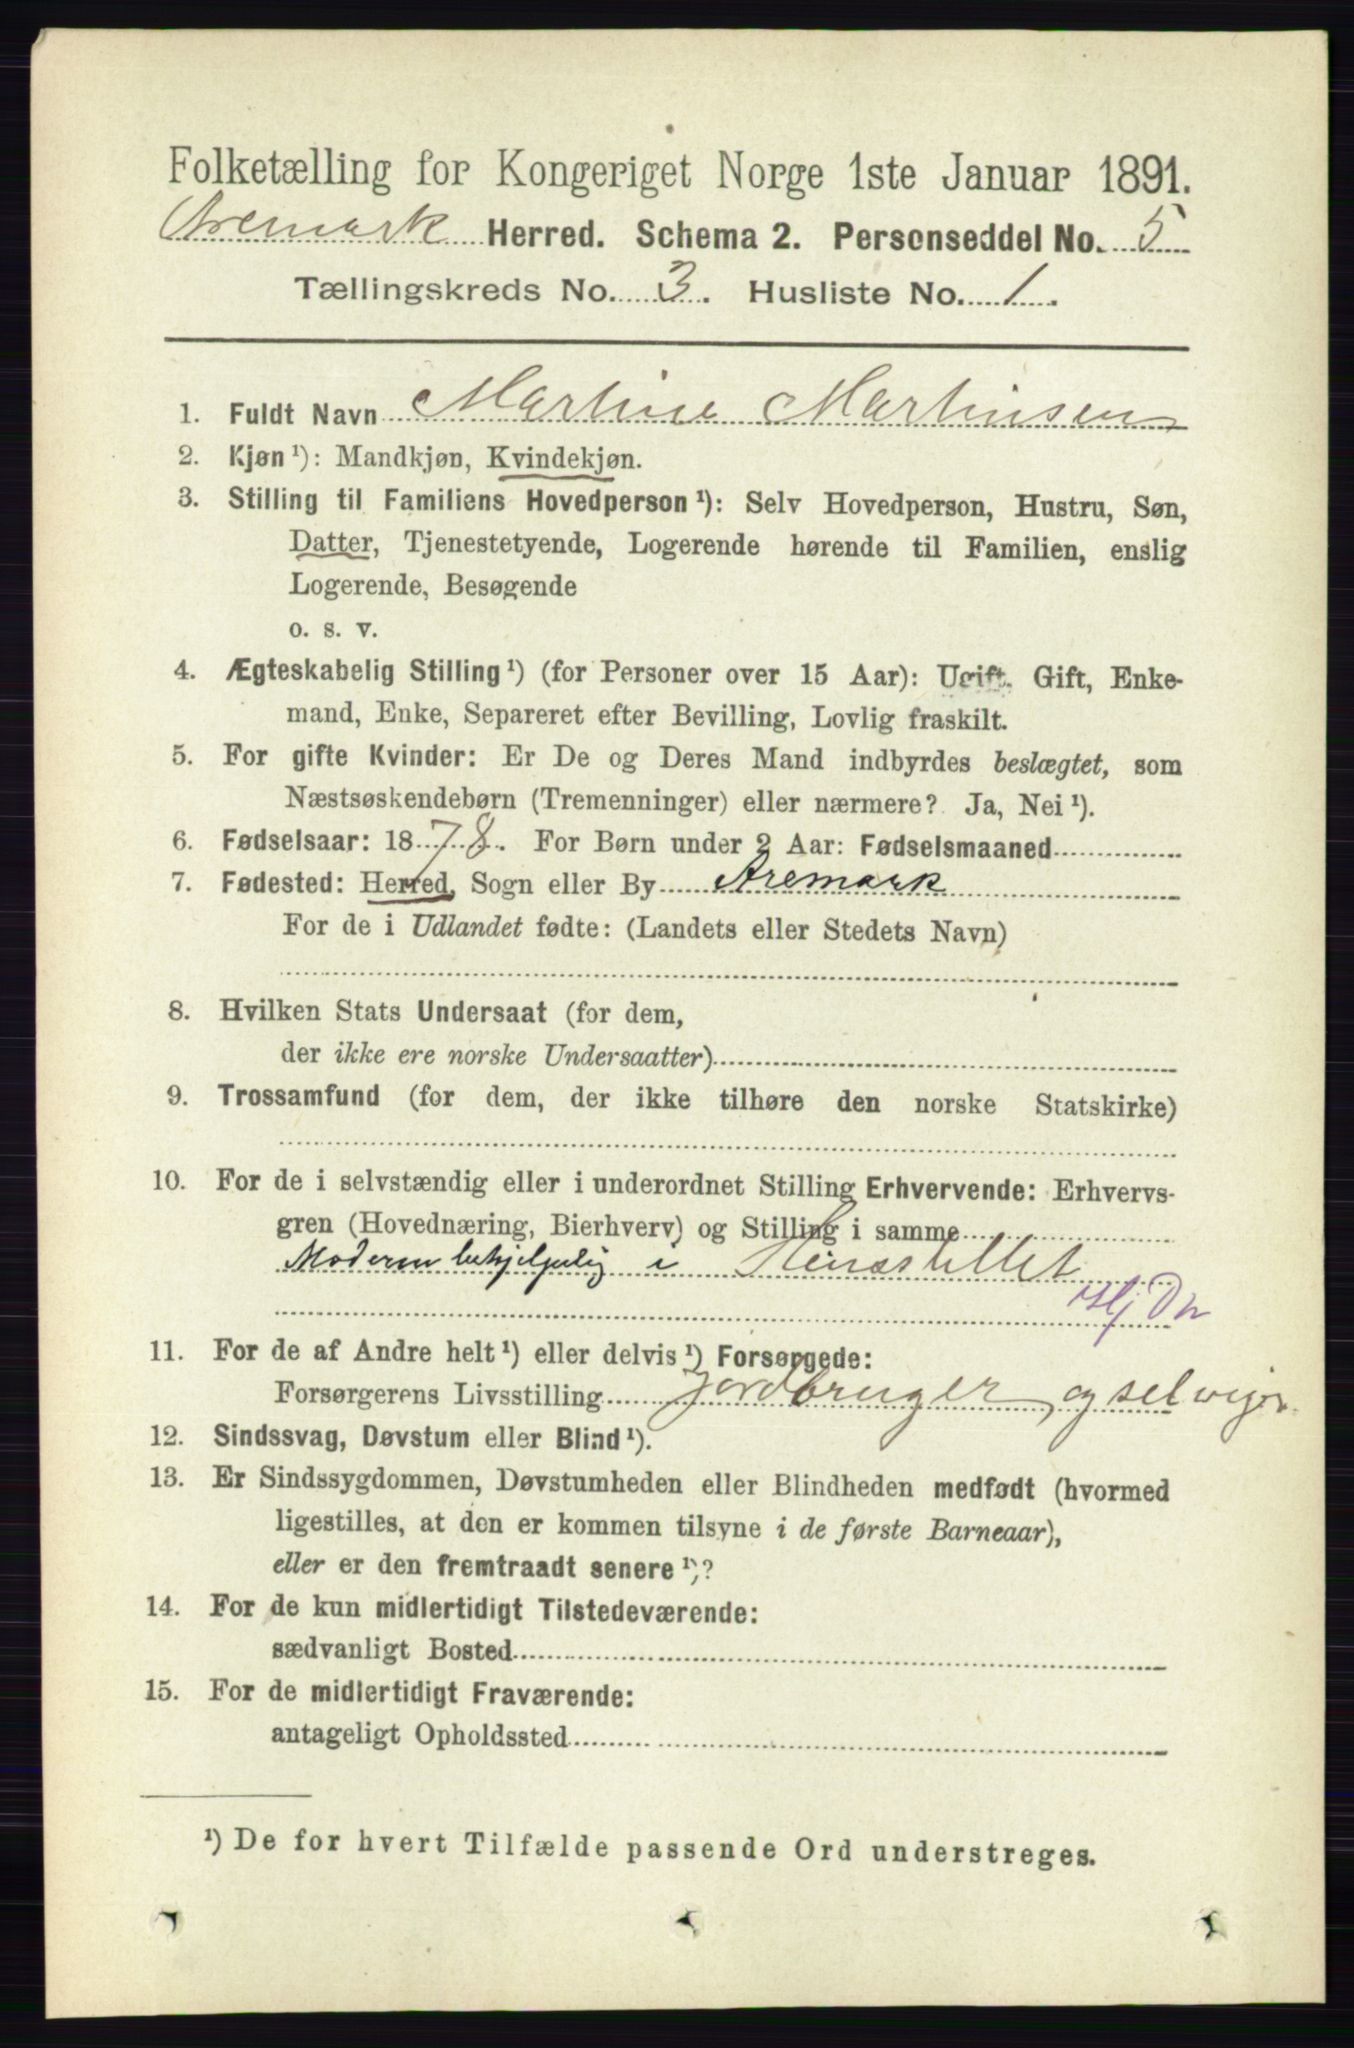 Folketælling for Kongeriget Norge 1ste Januar 1891.
Aremark Herred. Schema 2. Personseddel No. 5
Tællingskreds No. 3. Husliste No. 1.
1. Fuldt Navn Martine Martinsen
2. Kjøn ¹): Mandkjøn, Kvindekjøn.
3. Stilling til Familiens Hovedperson ¹): Selv Hovedperson, Hustru, Søn,
Datter, Tjenestetyende, Logerende hørende til Familien, enslig
Logerende, Besøgende
o. s. v.
4. Ægteskabelig Stilling ¹) (for Personer over 15 Aar): Ugift, Gift, Enke-
mand, Enke, Separeret efter Bevilling, Lovlig fraskilt.
5. For gifte Kvinder: Er De og Deres Mand indbyrdes beslægtet, som
Næstsøskendebørn (Tremenninger) eller nærmere? Ja, Nei ¹).
6. Fødselsaar: 1878. For Børn under 2 Aar: Fødselsmaaned
7. Fødested: Herred, Sogn eller By Aremark
For de i Udlandet fødte: (Landets eller Stedets Navn)
8. Hvilken Stats Undersaat (for dem,
der ikke ere norske Undersaatter)
9. Trossamfund (for dem, der ikke tilhøre den norske Statskirke)
10. For de i selvstændig eller i underordnet Stilling Erhvervende: Erhvervs-
gren (Hovednæring, Bierhverv) og Stilling i samme
Moderen behjelpelig i
11. For de af Andre helt ¹) eller delvis ¹) Forsørgede:
Forsørgerens Livsstilling Jordbruger og selveier
12. Sindssvag, Døvstum eller Blind ¹).
13. Er Sindssygdommen, Døvstumheden eller Blindheden medfødt (hvormed
ligestilles, at den er kommen tilsyne i de første Barneaar),
eller er den fremtraadt senere ¹)?
14. For de kun midlertidigt Tilstedeværende:
sædvanligt Bosted
15. For de midlertidigt Fraværende:
antageligt Opholdssted
¹) De for hvert Tilfælde passende Ord understreges.